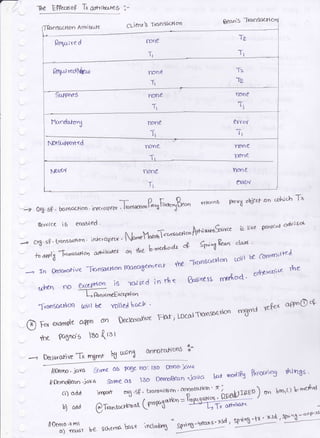 The Effects of Tx attributes :-
Transaction Attribute Client's Transaction Bean's Transaction
Required none T2
T1 T1
RequiredNew none T2
T1 T2
Supports none none
T1 T1
Mandatory none error
T1 T1
NotSupported none none
T1 none
Never none none
T1 error
→ Org.sf.transaction.interceptor.TransactionProxyFactoryBean returns proxy object on which Tx
Service is enabled.
→ org.sf.transaction.interceptor.NameMatchTransactionAttributeSource is like pointcut advisor
to apply Transaction attributes on the b.methods of Spring Bean class
→ In Declarative Transaction management the Transaction will be committed
when no exception is raised in the Business method. otherwise the
↳ RuntimeException
Transaction will be rolled back.
For example appn on Declarative Flat, Local Transaction mgmt refer appn
the pageno's 130 & 131
→ Declarative Tx mgmt by using annotations :-
//Demo.java same as page no: 130 Demo.java
//DemoBean.java same as 130 DemoBean.java but modify following things.
a) add import org.sf.transaction.annotation.*;
b) add @Transactional (propagation = Propagation.REQUIRED) on bm(1) b.method
↳ Tx attribute
//Demo.xml
a) must be schema base including spring-beans.xsd, spring-tx.xsd,